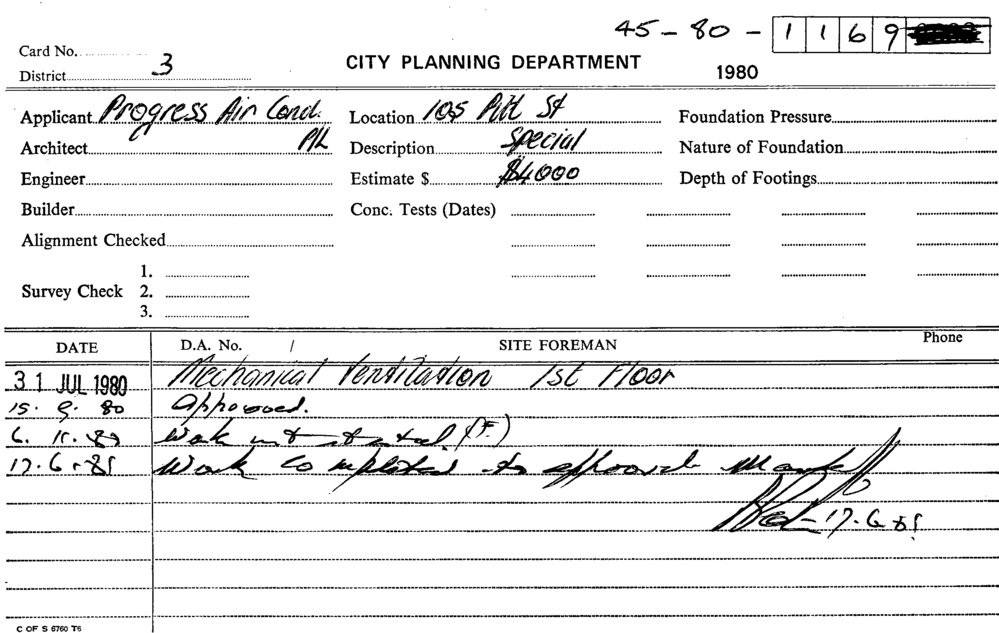 45 - 80 - 1169
Card No.
District 3
CITY PLANNING DEPARTMENT
1980
Applicant Progress Air Cond. P/L
Location 105 Pitt St
Foundation Pressure
Architect
Description Special
Nature of Foundation
Engineer
Estimate $ $4000
Depth of Footings
Builder
Conc. Tests (Dates)
Alignment Checked
Survey Check
1.
2.
3.
DATE
D.A. No. /
SITE FOREMAN
Phone
31 JUL 1980 Mechanical Ventilation 1st Floor
15. 9. 80 Approved.
6. 11. 80 Work not started (F.)
17.6.81 Work completed to approval
17.6.81
C OF S 6760 T6